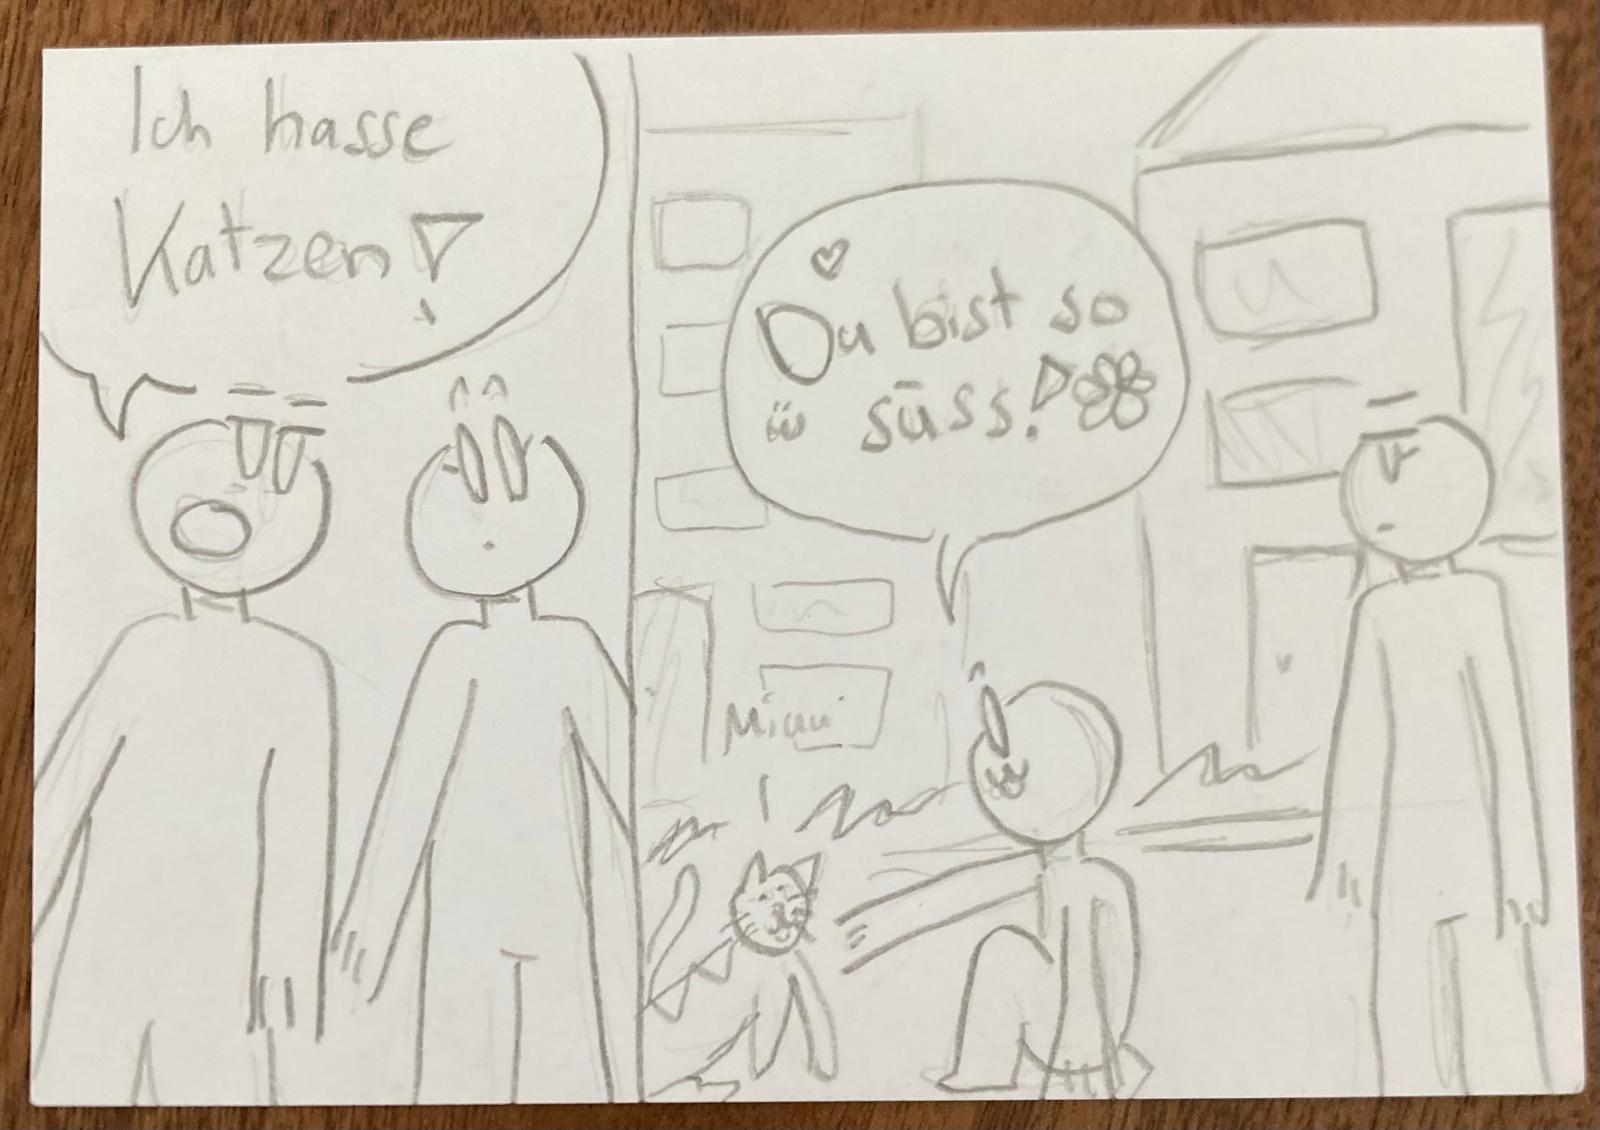 Ich hasse
Katzen!
Du bist so
süss!
Miau